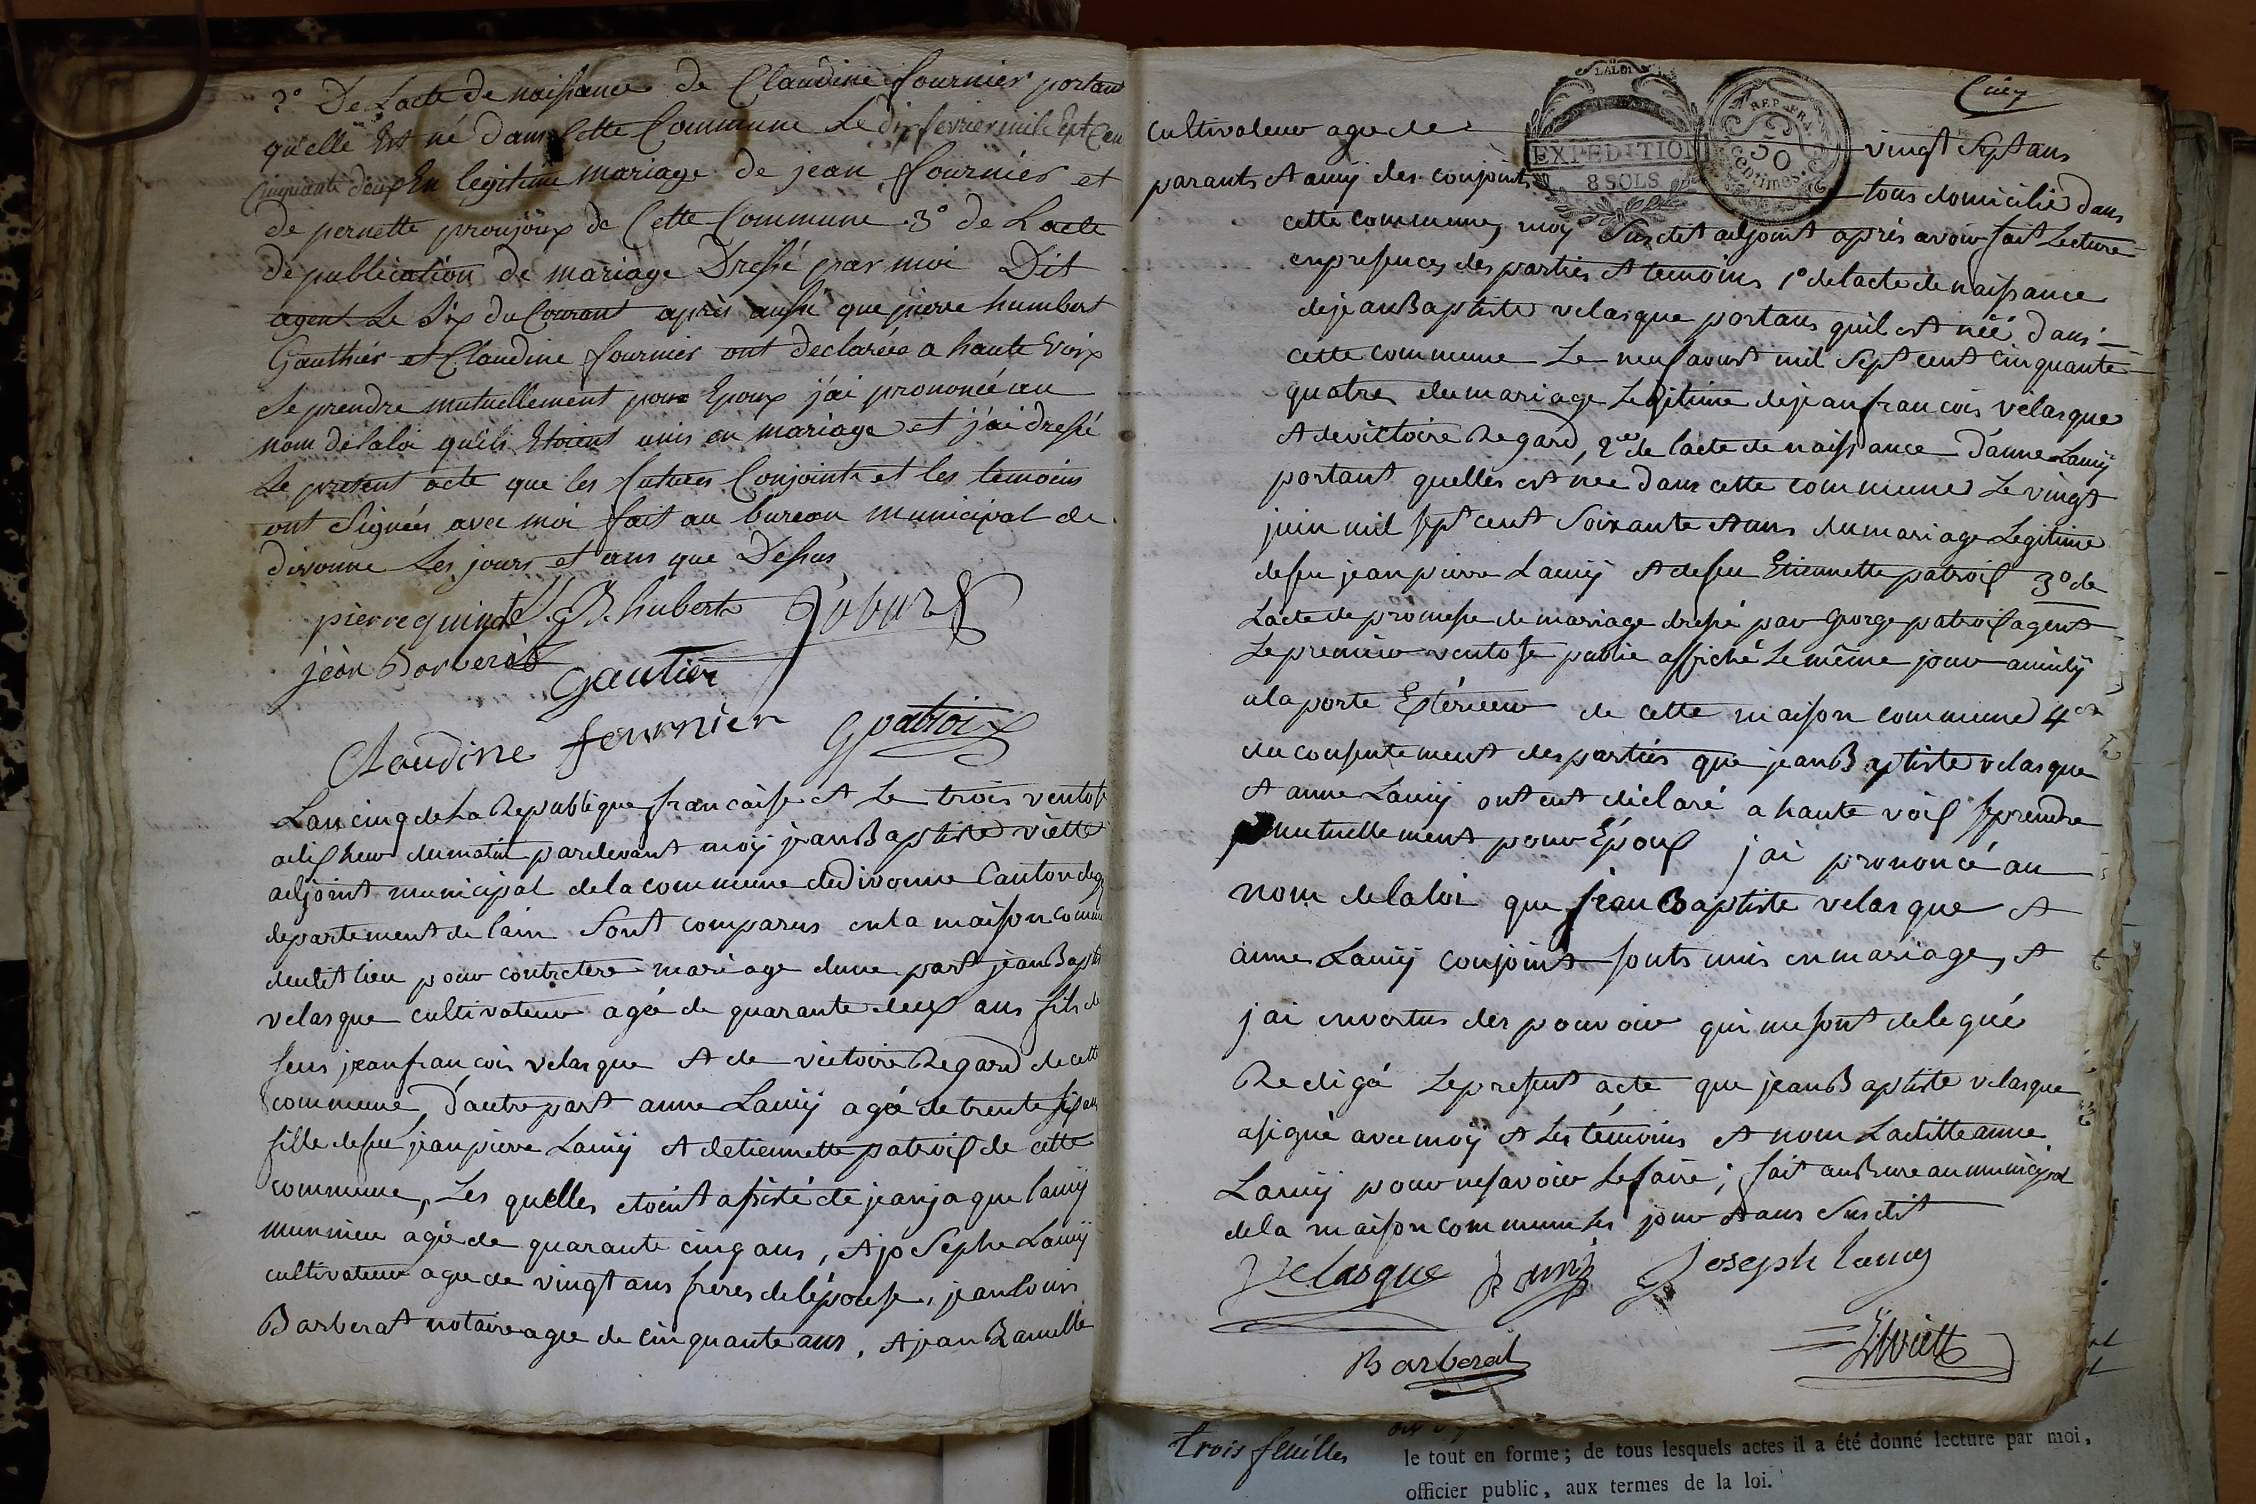 2° De Lacte de naissance de Claudine fournier portant
qu'elle Est né dans Cette Commune Le dix fevrier mil Sept Cen
Cinquante deux En legitime mariage de jean fournier et
de pernette proujoux de Cette Commune 3° de Lacte
de publication de mariage Dressé par moi Dit
agent Le Six du Courant après aussi que pierre humbert
Gauthier et Claudine fournier ont declarée a haute Voix
Se prendre mutuellement pour Epoux j'ai prononcée au
nom de la loi qu'ils Etoient unis en mariage et j'ai dressé
Le present acte que les futures Conjoints et les temoins
ont Signées avec moi fait au bureau municipal de
divonne Les jours et ans que Dessus
pierre quinet P. h. hubert
jean Barberat
Gautier
Claudine fournier G patroix
Lan cinq de La Republique francaise et Le trois ventose
a dix heur du matin pardevant moÿ jean Baptiste viette
adjoint municipal de la commune de divonne Canton de g
departement de lain Sont comparus en la maison commu
dudit lieu pour contractere mariage dune part jean Bapti
velasque cultivateur agé de quarante deux ans fils de
feus jean francois velasque et de victoire Regard de cette
commune, d'autre part anne Lamÿ agée de trente six ans
fille de feu jean pierre Lamÿ et detiennette patroix de cette
commune, Les quelles etoint assisté de jean jaque lamÿ
munnieu agé de quarante cinq ans, et joSephe Lamÿ
cultivateur age de vingt ans freres de l'épouse, jean louis
Barberat notaire age de cinquante ans, et jean Ramelle
LALOI
EXPEDITION
8 SOLS
REP. FRA.
50
centimes
cultivateur age de vingt Sept ans
parants et amij des conjoints tous domicilié dans
cette commune, moÿ Susdit adjoint après avoir fait Lecture
en presences des parties et temoins 1° de lacte de naissance
de jean Baptiste velasque portans quil est née dans
cette commune Le neuf aoust mil Sept cent cinquante
quatre du mariage Legitime de jean francois velasque
et de victoire Regard, 2° de lacte de naissance d'anne Lamÿ
portant quelles est née dans cette commune Le vingt
juin mil sept cent Soixante et un du mariage Legitime
de feu jean pierre Lamÿ et de feu Etiennette patroix 3° de
Lacte de promesse de mariage dressé par George patroix agent
Le premier ventose publie affiché Le même jour
a la porte Extérieur de cette maison commune 4°
du consentement des parties que jean Baptiste velasque
et anne Lamÿ ont declaré a haute voix se prendre
mutuellement pour Epoux j'ai prononcé au
nom de la loi que jean Baptiste velasque et
anne Lamÿ conjoint sonts unis en mariage, et
j'ai en vertus des pouvoir qui me sont delegué
Redigé Le present acte que jean Baptiste velasque
a signé avec moÿ et Les témoins et nom Laditte anne
Lamÿ pour ne savoir Le faire; fait au Bureau municipal
de la maison commune Les jour et ans Susdit
Velasque Lamÿ Joseph lamy
Barberat Viette
trois feuilles
le tout en forme; de tous lesquels actes il a été donné lecture par moi,
officier public, aux termes de la loi.